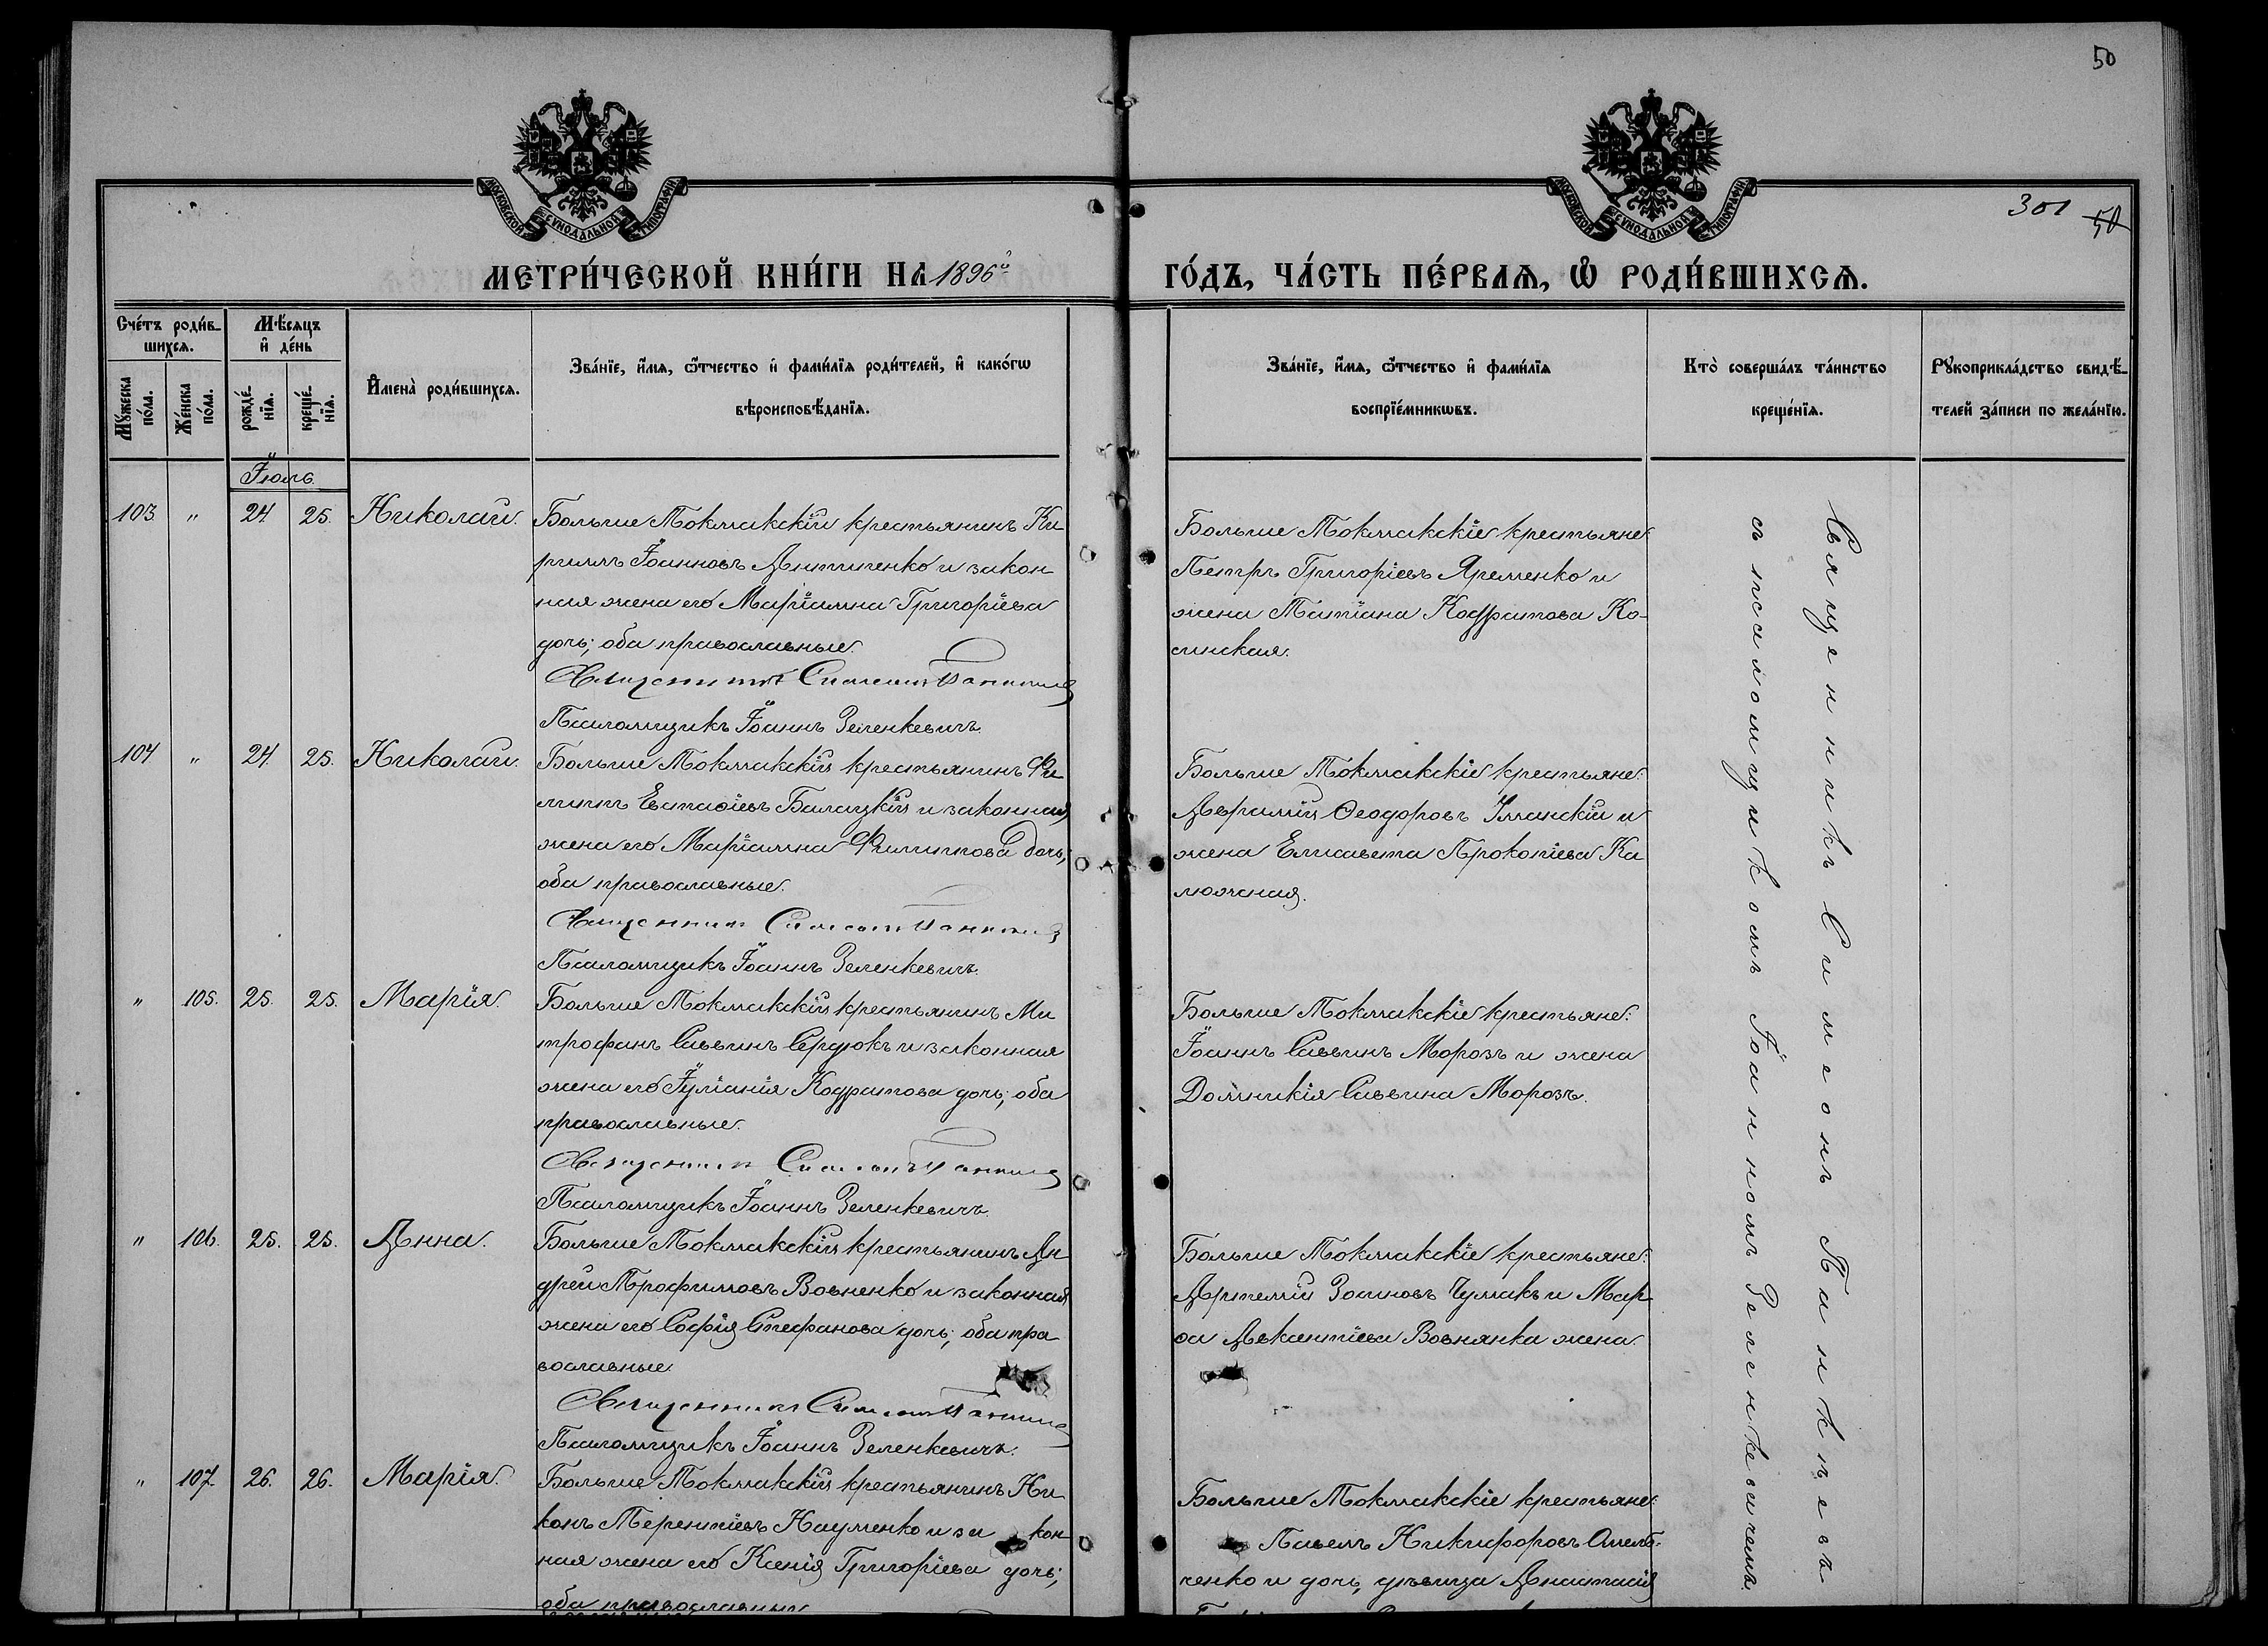 50
МОСКОВСКОЙ СУНОДАЛЬНОЙ ТИПОГРАФІИ
МОСКОВСКОЙ СУНОДАЛЬНОЙ ТИПОГРАФІИ
301 50
МЕТРИ́ЧЕСКОЙ КНИ́ГИ НА 1896й
ГО́ДЪ, ЧА́СТЬ ПЕ́РВАѦ, Ѡ҆ РОДИ́ВШИХСѦ.
Сче́тъ роди́в-
шихсѧ.
Мѣ́сѧцъ
и҆ де́нь
Мꙋ́жеска
по́ла.
Же́нска
по́ла.
рожде́-
нїѧ.
креще́-
нїѧ.
И҆мена̀ роди́вшихсѧ.
Зва́нїе, и҆́мѧ, ѻ҆́тчество и҆ фами́лїѧ роди́телей, и҆ како́гѡ
вѣроисповѣ́данїѧ.
Зва́нїе, и҆́мѧ, ѻ҆́тчество и҆ фами́лїѧ
воспрїе́мникѡвъ.
Кто̀ соверша́лъ та́инство
креще́нїѧ.
Рꙋкоприкла́дство свидѣ́-
телей за́писи по жела́нїю.
Іюль
103. " 24. 25. Николай.
Больше Токмакскій крестьянинъ Ки-
риллъ Іоанновъ Антипенко и закон-
ная жена его Маріамна Григоріева
дочь; оба православные.
Священникъ Симеонъ
Псаломщикъ Іоаннъ Зеленкевичъ.
Больше Токмакскіе крестьяне:
Петръ Григоріевъ Яременко и
жена Татіана Кодратова Ко-
синская.
104 " 24. 25. Николай.
Больше Токмакскій крестьянинъ Фи-
липпъ Евстаѳіевъ Балицкій и законная
жена его Маріамна Филиппова дочь;
оба православные.
Священникъ Симеонъ
Псаломщикъ Іоаннъ Зеленкевичъ.
Больше Токмакскіе крестьяне:
Аврамій Ѳеодоровъ Уманскій и
жена Елисавета Прокопіева Ка-
люжная.
" 105. 25. 25. Марія.
Больше Токмакскій крестьянинъ Ми-
трофанъ Саввинъ Сердюкъ и законная
жена его Іуліанія Кодратова дочь; оба
православные.
Священникъ Симеонъ
Псаломщикъ Іоаннъ Зеленкевичъ.
Больше Токмакскіе крестьяне:
Іоаннъ Саввинъ Морозъ и жена
Домникія Саввина Морозъ.
" 106. 25. 25. Анна.
Больше Токмакскій крестьянинъ Ан-
дрей Трофимовъ Вовненко и законная
жена его Софія Стефанова дочь; оба пра-
вославные.
Священникъ Симеонъ
Псаломщикъ Іоаннъ Зеленкевичъ.
Больше Токмакскіе крестьяне:
Артемій Зоиновъ Чумакъ и Мар-
ѳа Авксентіева Вовнянка жена.
" 107. 26. 26. Марія.
Больше Токмакскій крестьянинъ Ни-
конъ Терентіевъ Науменко и за кон-
ная жена его Ксенія Григоріева дочь;
оба православные
Больше Токмакскіе крестьяне:
Павелъ Никифоровъ Омель-
ченко и дочь, дѣвица Анастасія
Священникъ Симеонъ Панкѣевъ
съ псаломщикомъ Іоанномъ Зеленкевичемъ.